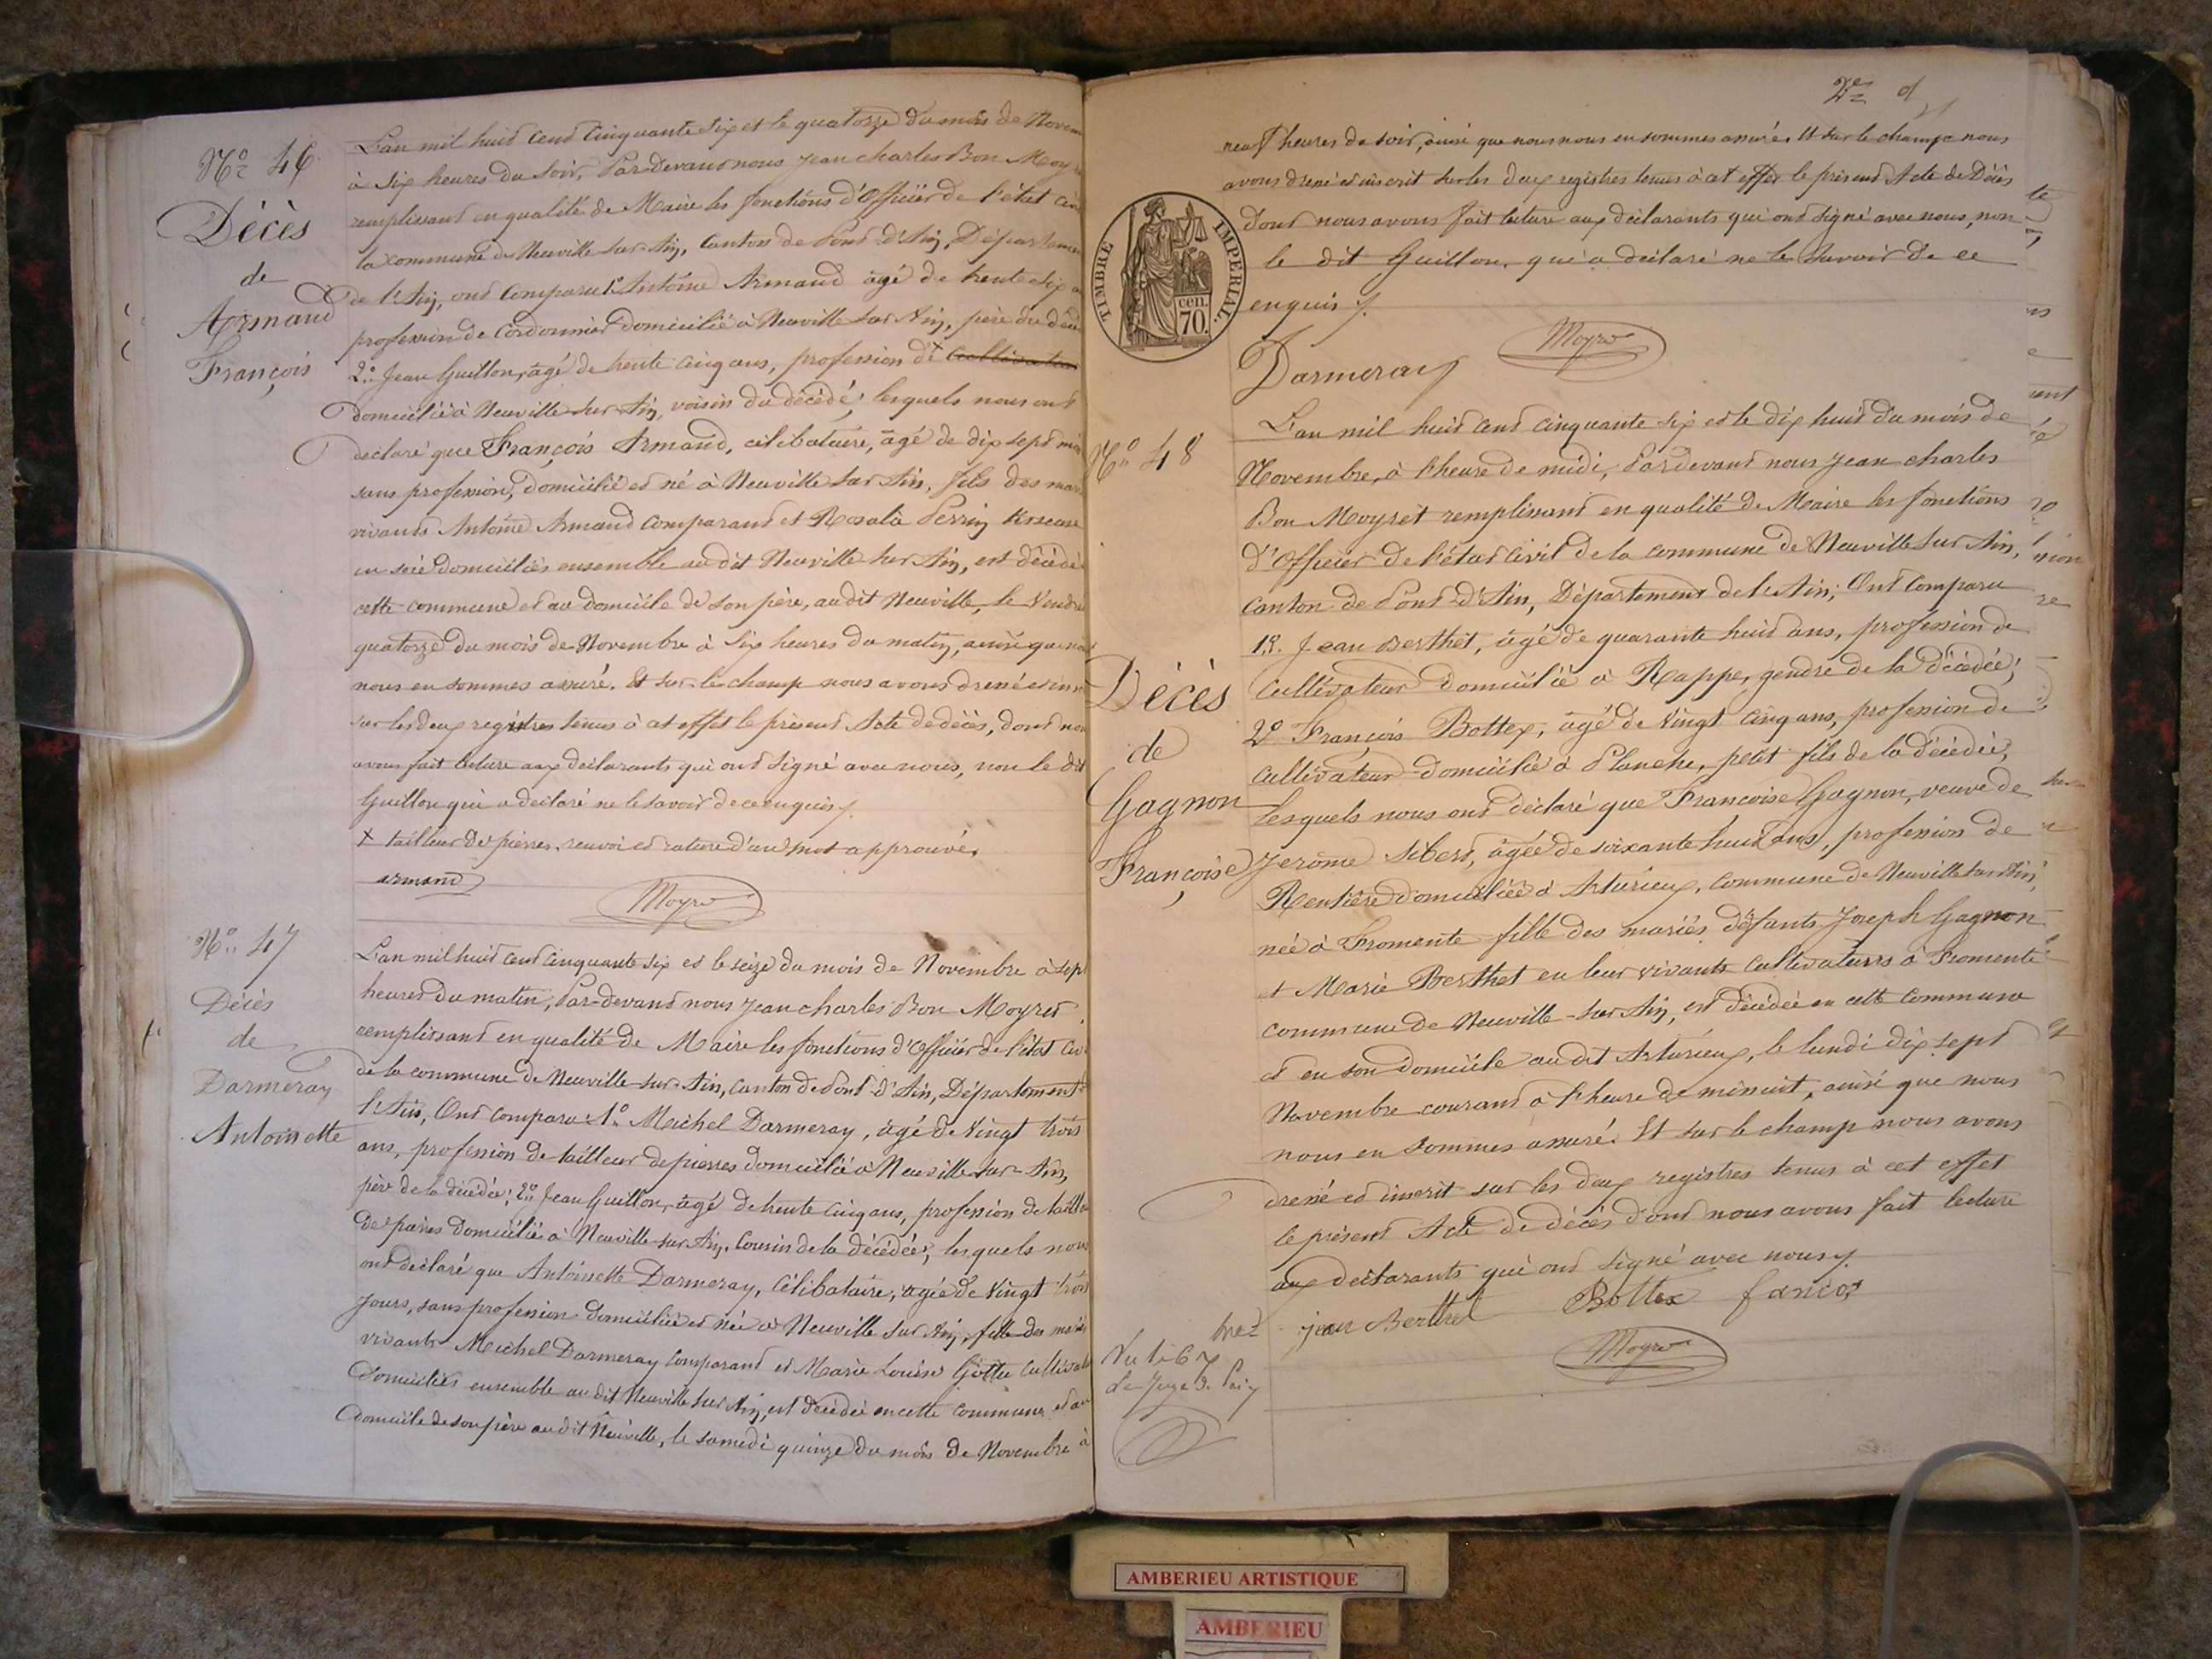 No 46
Décès
de
Armand
François
L'an mil huit cent cinquante six et le quatorze du mois de Novem
à six heures du soir, Par-devant nous Jean Charles Bon Moyr
remplissant en qualité de Maire les fonctions d'Officier de l'état civ
la commune de Neuville sur Ain, canton de Pont d'Ain, Départeme
de l'Ain, ont comparu 1o Antoine Armand âgé de trente six a
profession de Cordonnier domicilié à Neuville sur Ain, père du décé
2o Jean Guillon, âgé de trente cinq ans, profession de x Cultivateur
domicilié à Neuville sur Ain, voisin du décédé; lesquels nous ont
déclaré que François Armand, célibataire, âgé de dix sept m
sans profession, domicilié et né à Neuville sur Ain, fils des mar
vivants Antoine Armand comparant et Rosalie Perrin
en soie domiciliés ensemble au dit Neuville sur Ain, est décédé
cette commune et au domicile de son père, au dit Neuville, le Vendre
quatorze du mois de Novembre à six heures du matin, ainsi que no
nous en sommes assuré. Et sur le champ nous avons dressé et in
sur les deux registres tenus à cet effet le présent Acte de décès, dont no
avons fait lecture aux déclarants qui ont signé avec nous, non le dit
Guillon qui a déclaré ne le savoir de ce enquis.
x tailleur de pierres. renvoi et rature d'un mot approuvés.
armand
Moyret
No 47
Décès
de
Darmeray
Antoinette
L'an mil huit cent cinquante six et le seize du mois de Novembre à sept
heures du matin, Par-devant nous Jean Charles Bon Moyret
remplissant en qualité de Maire les fonctions d'Officier de l'état civ
de la commune de Neuville sur Ain, canton de Pont d'Ain, Département
l'Ain, Ont comparu: 1o Michel Darmeray, âgé de vingt trois
ans, profession de tailleur de pierres domicilié à Neuville sur Ain,
père de la décédée; 2o Jean Guillon, âgé de trente cinq ans, profession de taille
de pierres domicilié à Neuville sur Ain, Cousin de la décédée, lesquels nous
ont déclaré que Antoinette Darmeray, Célibataire, âgée de vingt trois
Jours, sans profession domiciliée et née à Neuville sur Ain, fille des mariés
vivants Michel Darmeray comparant et Marie Louise Gottu Cultivat
domiciliés ensemble au dit Neuville sur Ain, est décédée en cette commune et au
domicile de son père au dit Neuville, le samedi quinze du mois de Novembre à
neuf heures du soir, ainsi que nous nous en sommes assuré. Et sur le champ nous
avons dressé et inscrit sur les deux registres tenus à cet effet le présent Acte de Décès
dont nous avons fait lecture aux déclarants qui ont signé avec nous, non
le dit Guillon, qui a déclaré ne le savoir de ce
enquis.
TIMBRE IMPERIAL
70 cen.
Moyret
Darmeray
No 48
Décès
de
Gagnon
Françoise
L'an mil huit cent cinquante six et le dix huit du mois de
Novembre, à l'heure de midi, Pardevant nous Jean Charles
Bon Moyret remplissant en qualité de Maire les fonctions
d'Officier de l'état civil de la commune de Neuville sur Ain,
Canton de Pont d'Ain, Département de l'Ain; Ont comparu
1o. Jean Berthet, âgé de quarante huit ans, profession de
Cultivateur domicilié à Rappe, gendre de la décédée;
2o François Bottex, âgé de vingt cinq ans, profession de
cultivateur domicilié à Planche, petit fils de la décédée,
Lesquels nous ont déclaré que Françoise Gagnon, veuve de
Jerôme Sibert, âgée de soixante huit ans, profession de
Rentière domiciliée à Arturieux, commune de Neuville sur Ain,
née à Fromente fille des mariés défunts Joseph Gagnon
et Marie Berthet en leur vivants cultivateurs à Fromente
commune de Neuville-sur Ain, est décédée en cette commune
et en son domicile au dit Arturieux, le lundi dix sept
Novembre courant à l'heure de minuit, ainsi que nous
nous en sommes assuré. Et sur le champ nous avons
dressé et inscrit sur les deux registres tenus à cet effet
le présent Acte de décès dont nous avons fait lecture
aux déclarants qui ont signé avec nous.
jean Berthet Bottex fancos
Moyret
Le Juge de Paix
AMBERIEU ARTISTIQUE
AMBERIEU